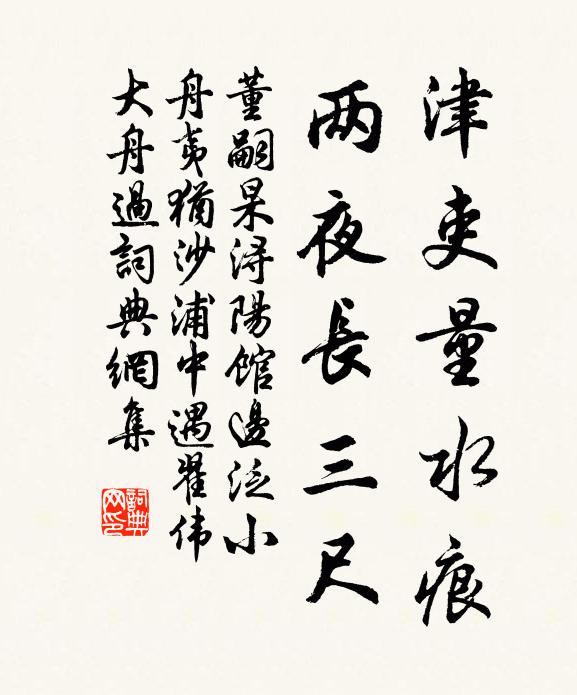 津吏量水痕
两夜長三尺
董嗣杲浔陽館邊泛小
舟夷猶沙浦中遇翟伟
大舟過詞典網集
詞典网印